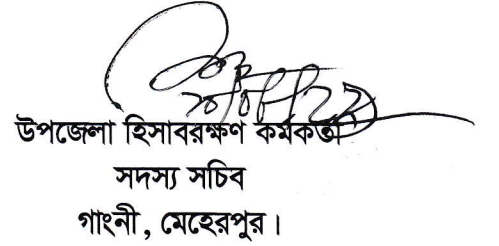 উপজেলা হিসাবরক্ষণ কর্মকর্তা
সদস্য সচিব
গাংনী, মেহেরপুর।